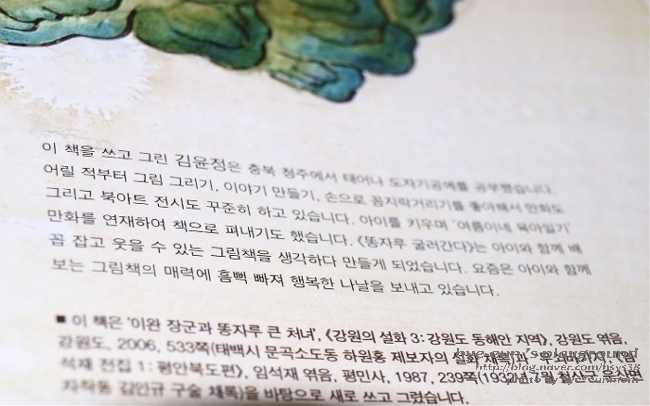 이 책을 쓰고 그린 김윤정은 충북 청주에서 태어나 도자기공예를 공부했습니다.
어릴 적부터 그림 그리기, 이야기 만들기, 손으로 꼼지락거리기를 좋아해서 만화도
그리고 북아트 전시도 꾸준히 하고 있습니다. 아이를 키우며 '여름이네 육아일기'
만화를 연재하여 책으로 펴내기도 했습니다. 《똥자루 굴러간다》는 아이와 함께 배
꼽 잡고 웃을 수 있는 그림책을 생각하다 만들게 되었습니다. 요즘은 아이와 함께
보는 그림책의 매력에 흠뻑 빠져 행복한 나날을 보내고 있습니다.
■ 이 책은 '이완 장군과 똥자루 큰 처녀', 《강원의 설화 3: 강원도 동해안 지역》, 강원도 엮음,
강원도, 2006, 533쪽(태백시 문곡소도동 하원홍 제보자의 설화 채록)과
석재 전집 1: 평안북도편》, 임석재 엮음, 평민사, 1987, 239쪽(193
김안규 구술 채록)을 바탕으로 새로 쓰고 그렸습니다.
hye eun's playground
http://blog.naver.com/hsys38